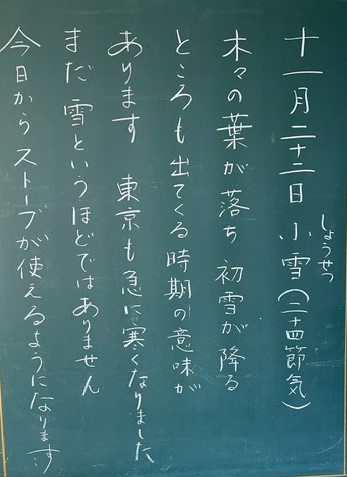 十一月二十二日 小雪(二十四節気)
しょうせつ
木々の葉が落ち 初雪が降る
ところも出てくる時期の意味が
あります 東京も急に寒くなりました
まだ雪というほどではありません
今日からストーブが使えるようになります